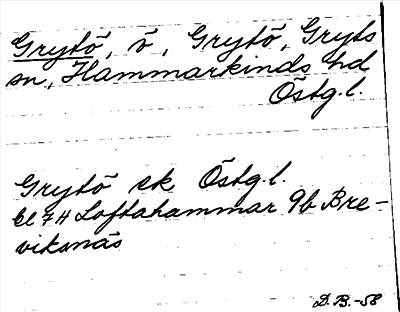 Grytö, ö, Grytö, Gryts
sn, Hammarkinds hd
Östg.l.
Grytö ek Östg.l.
bl 7H Loftahammar 9b Bre-
viksnäs
D.B.-58